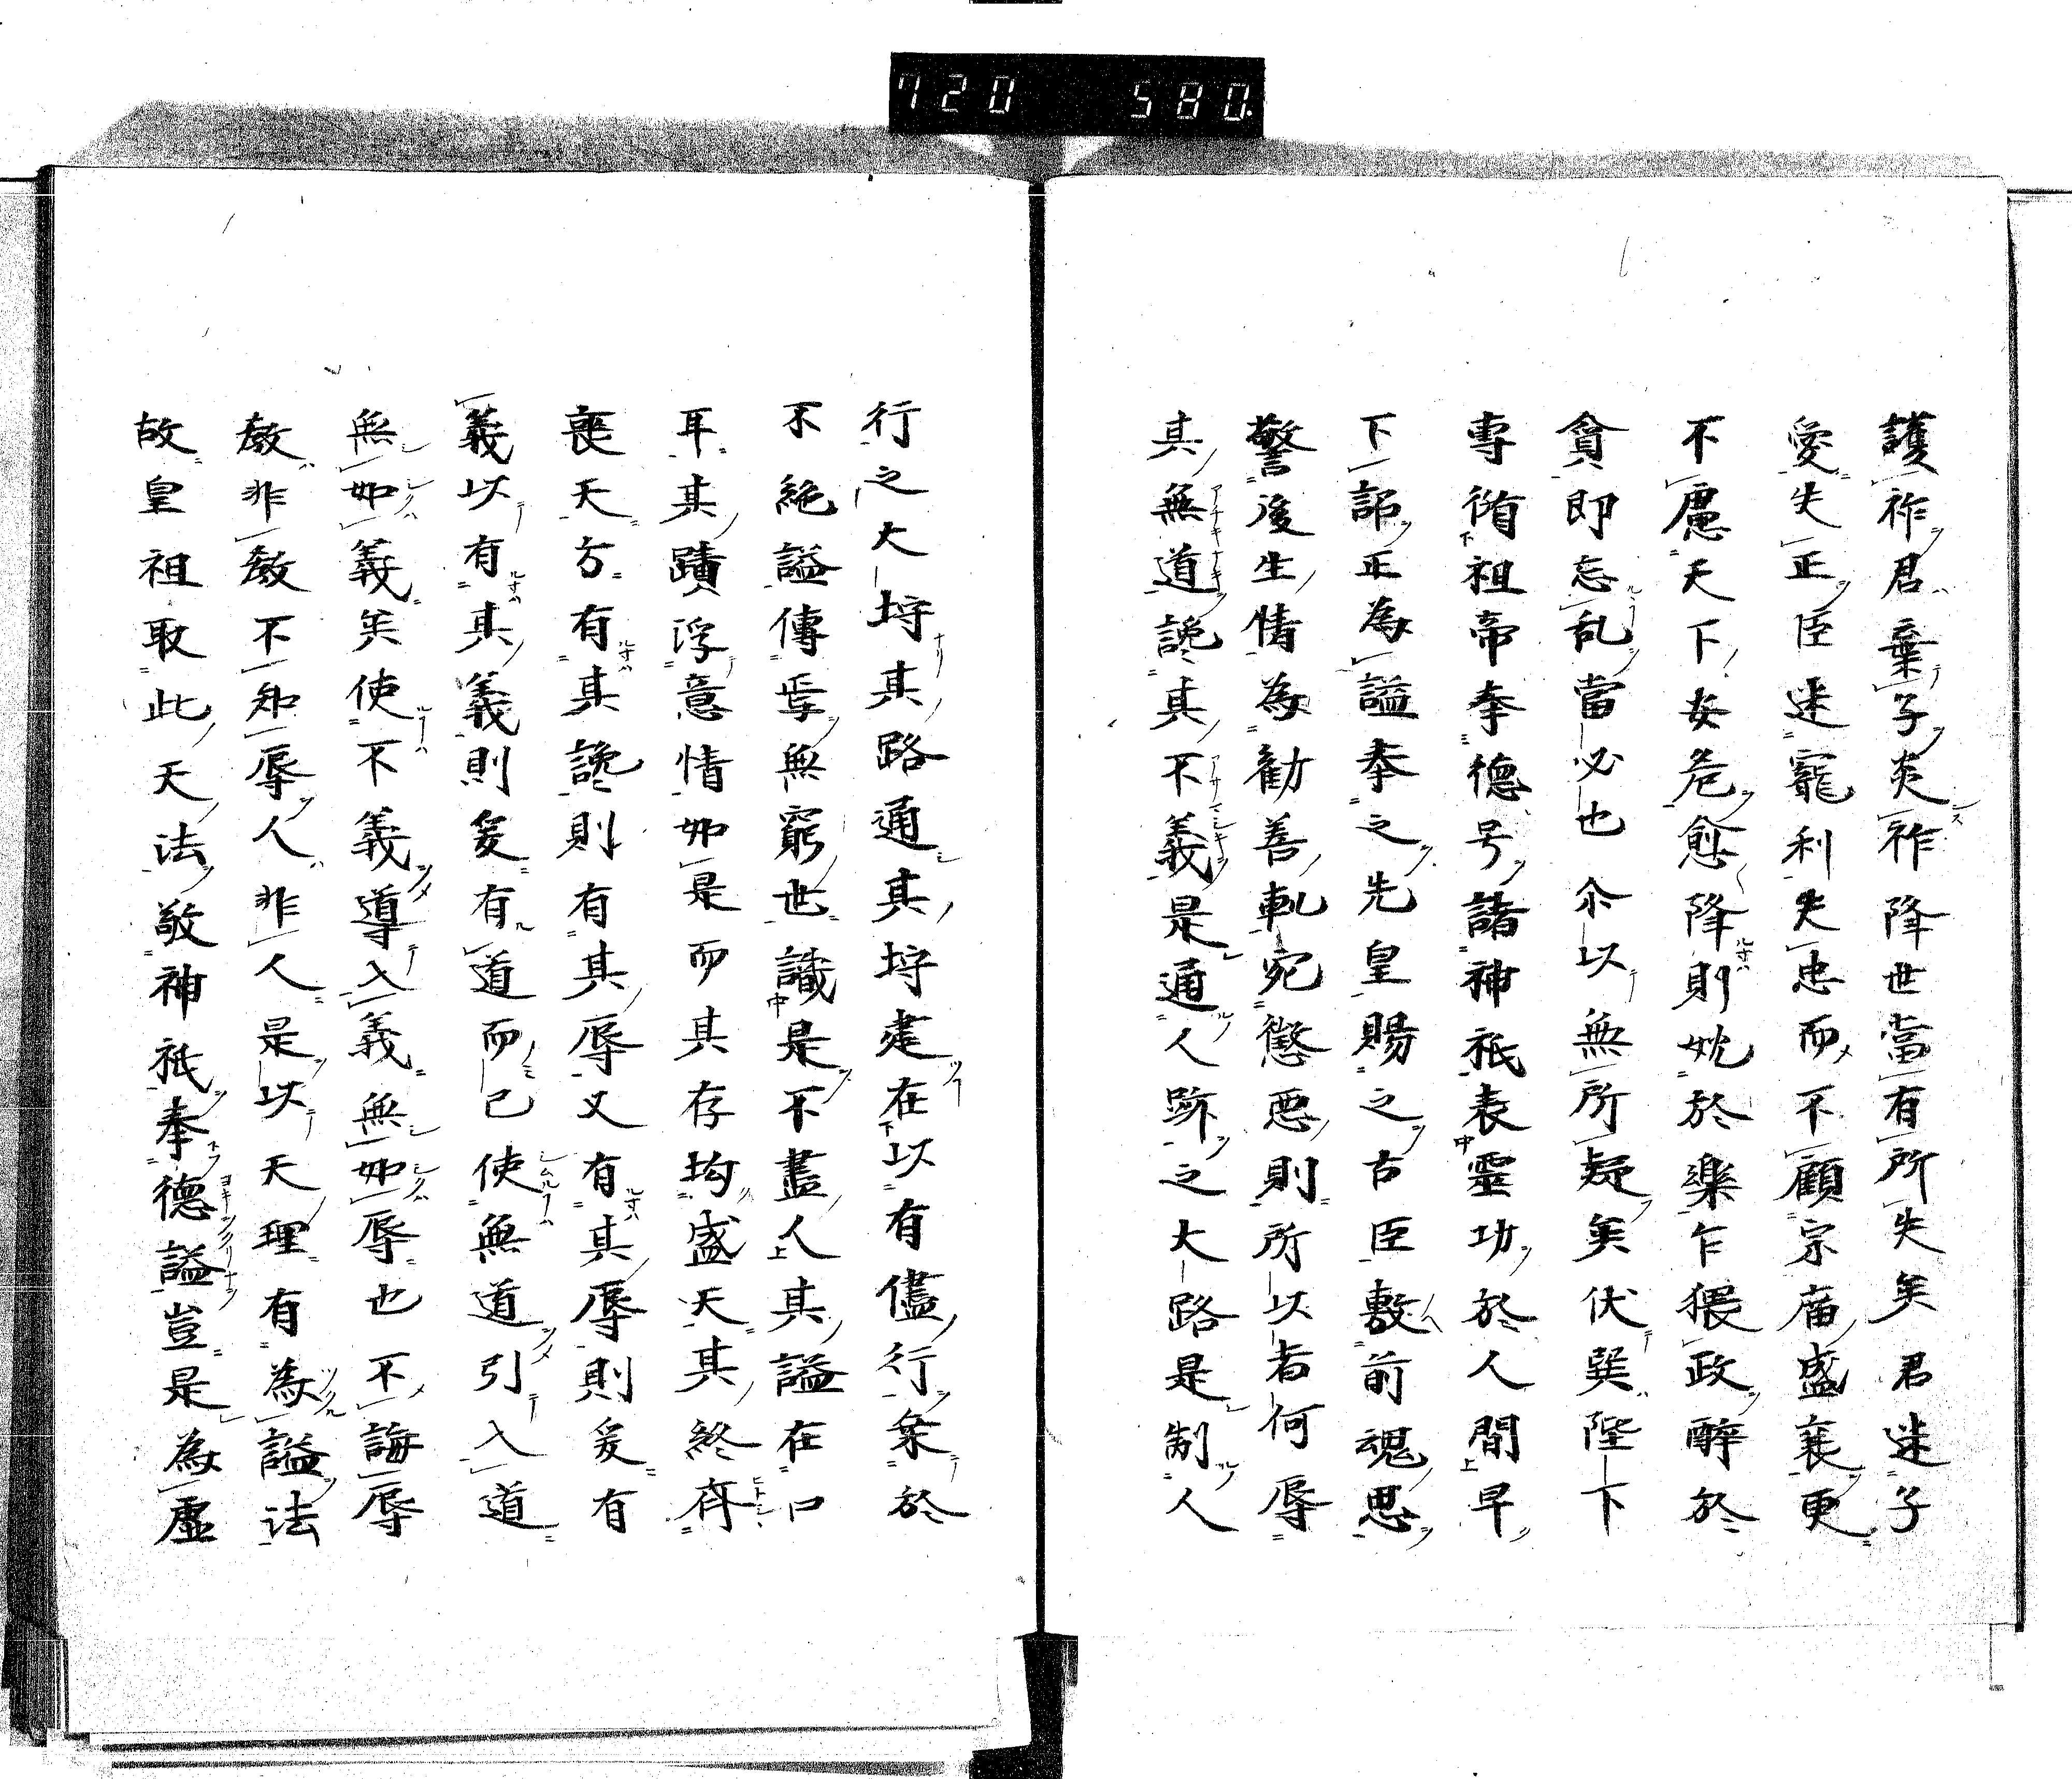 720 580.
護祚君棄子炎祚降世當有所失矣君迷子
愛失正臣迷寵利失忠而不顧宗庿盛衰更
不慮天下安危愈降則妣於樂乍猥政醉於
貪即忘乱當必也尒以無所疑矣伏巽陛下
専脩祖帝奉德号諸神祇表靈功於人間早
下詔正為謚奉之先皇賜之古臣敷前魂思
警後生情為勧善軌宛懲悪則所以者何辱
其無道讒其不義是通人跡之大路是制人
行之大埒其路通其埒建在以有儘行桒於
不絶謚傳乎無窮世識是不盡人其謚在口
耳其蹟浮意情如是而其存均盛天其終斉
喪天方有其讒則有其辱又有其辱則爰有
義以有其義則爰有道而已使無道引入道
無如義矣使不義導入義無如辱也不誨辱
教非教不知辱人非人是以天理有為謚法
故皇祖取此天法敬神祇奉徳謚豈是為虚